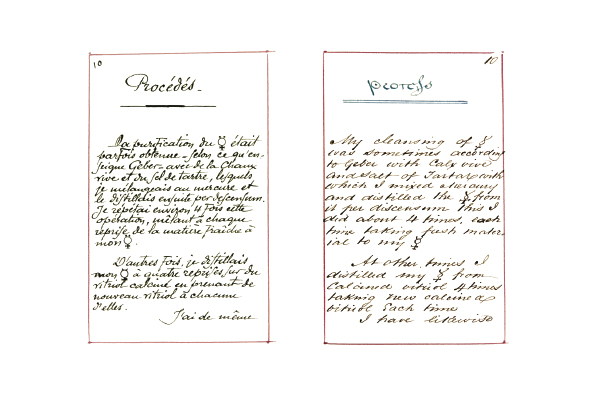 10
Procédés_
La purification du ☿ était
parfois obtenue _ selon ce qu'en-
seigne Géber _ avec de la Chaux
vive et du sel de tartre, lesquels
je mélangeais au mercure et
le distillais ensuite per descensum.
Je répétai environ 4 fois cette
opération, mettant à chaque
reprise de la matière fraîche à
mon ☿.
D'autres fois, je distillais
mon ☿ à quatre reprises sur du
vitriol calciné en prenant de
nouveau vitriol à chacune
d'elles.
J'ai de même
10
Process
My cleansing of ☿
was sometimes according
to Geber with Calx vive
and salt of Tartar with
which I mixed Mercury
and distilled the ☿ from
it per discensum this I
did about 4 times, each
time taking fresh mater
ial to my ☿
At other times I
distilled my ☿ from
Calcined vitriol 4 times
taking new calcined
vitriol Each time
I have likewise